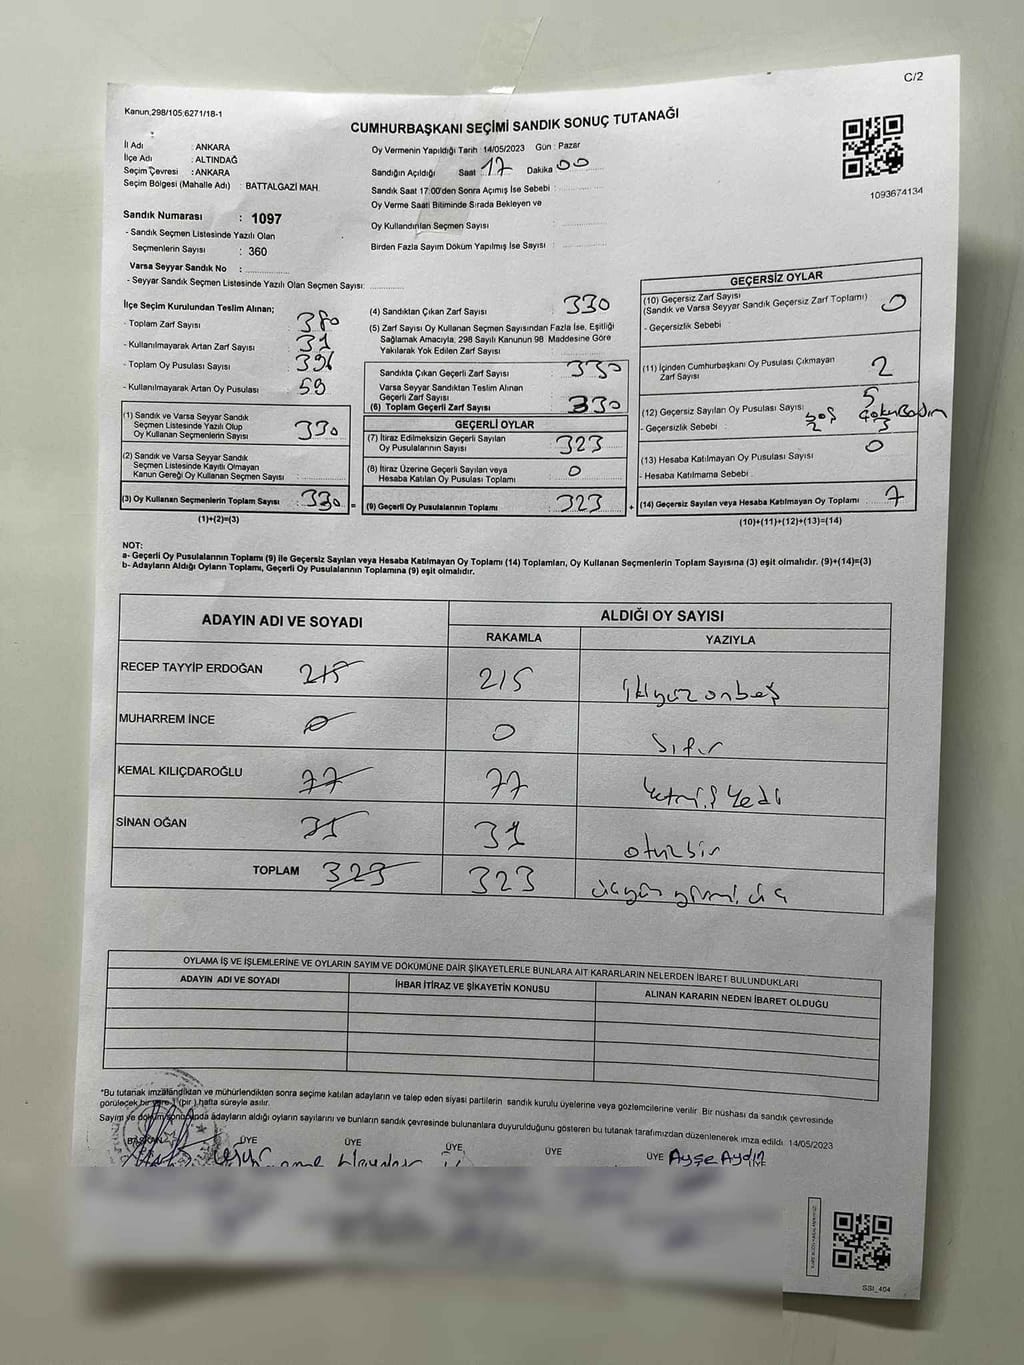 C/2
Kanun;298/105;6271/18-1
CUMHURBAŞKANI SEÇİMİ SANDIK SONUÇ TUTANAĞI
İl Adı : ANKARA
İlçe Adı : ALTINDAĞ
Seçim Çevresi : ANKARA
Seçim Bölgesi (Mahalle Adı) : BATTALGAZİ MAH.
Sandık Numarası : 1097
- Sandık Seçmen Listesinde Yazılı Olan
Seçmenlerin Sayısı : 360
Varsa Seyyar Sandık No :
- Seyyar Sandık Seçmen Listesinde Yazılı Olan Seçmen Sayısı:
Oy Vermenin Yapıldığı Tarih :14/05/2023 Gün : Pazar
Sandığın Açıldığı Saat 17 Dakika 00
Sandık Saat 17:00'den Sonra Açımış İse Sebebi :
Oy Verme Saati Bitiminde Sırada Bekleyen ve
Oy Kullandırılan Seçmen Sayısı :
Birden Fazla Sayım Döküm Yapılmış İse Sayısı :
1093674134
İlçe Seçim Kurulundan Teslim Alınan;
- Toplam Zarf Sayısı : 380
- Kullanılmayarak Artan Zarf Sayısı : 31
- Toplam Oy Pusulası Sayısı :
- Kullanılmayarak Artan Oy Pusulası : 59
(1) Sandık ve Varsa Seyyar Sandık
Seçmen Listesinde Yazılı Olup
Oy Kullanan Seçmenlerin Sayısı : 330
(2) Sandık ve Varsa Seyyar Sandık
Seçmen Listesinde Kayıtlı Olmayan
Kanun Gereği Oy Kullanan Seçmen Sayısı :
(3) Oy Kullanan Seçmenlerin Toplam Sayısı : 330 =
(1)+(2)=(3)
(4) Sandıktan Çıkan Zarf Sayısı : 330
(5) Zarf Sayısı Oy Kullanan Seçmen Sayısından Fazla İse, Eşitliği
Sağlamak Amacıyla, 298 Sayılı Kanunun 98 Maddesine Göre
Yakılarak Yok Edilen Zarf Sayısı :
Sandıkta Çıkan Geçerli Zarf Sayısı : 330
Varsa Seyyar Sandıktan Teslim Alınan
Geçerli Zarf Sayısı :
(6) Toplam Geçerli Zarf Sayısı : 330
GEÇERLİ OYLAR
(7) İtiraz Edilmeksizin Geçerli Sayılan
Oy Pusulalarının Sayısı : 323
(8) İtiraz Üzerine Geçerli Sayılan veya
Hesaba Katılan Oy Pusulası Toplamı : 0
(9) Geçerli Oy Pusulalarının Toplamı : 323 +
GEÇERSİZ OYLAR
(10) Geçersiz Zarf Sayısı
(Sandık ve Varsa Seyyar Sandık Geçersiz Zarf Toplamı) : 0
- Geçersizlik Sebebi :
(11) İçinden Cumhurbaşkanı Oy Pusulası Çıkmayan
Zarf Sayısı : 2
(12) Geçersiz Sayılan Oy Pusulası Sayısı : 5
- Geçersizlik Sebebi : boş 2 çoklu Basım 3
(13) Hesaba Katılmayan Oy Pusulası Sayısı : 0
- Hesaba Katılmama Sebebi :
(14) Geçersiz Sayılan veya Hesaba Katılmayan Oy Toplamı : 7
(10)+(11)+(12)+(13)=(14)
NOT:
a- Geçerli Oy Pusulalarının Toplamı (9) ile Geçersiz Sayılan veya Hesaba Katılmayan Oy Toplamı (14) Toplamları, Oy Kullanan Seçmenlerin Toplam Sayısına (3) eşit olmalıdır. (9)+(14)=(3)
b- Adayların Aldığı Oyların Toplamı, Geçerli Oy Pusulalarının Toplamına (9) eşit olmalıdır.
ADAYIN ADI VE SOYADI
ALDIĞI OY SAYISI
RAKAMLA YAZIYLA
RECEP TAYYİP ERDOĞAN 215 215 ikiyüzonbeş
MUHARREM İNCE 0 0 Sıfır
KEMAL KILIÇDAROĞLU 77 77 Yetmiş Yedi
SİNAN OĞAN 31 31 otuzbir
TOPLAM 323 323 üçyüz yirmi üç
OYLAMA İŞ VE İŞLEMLERİNE VE OYLARIN SAYIM VE DÖKÜMÜNE DAİR ŞİKAYETLERLE BUNLARA AİT KARARLARIN NELERDEN İBARET BULUNDUKLARI
ADAYIN ADI VE SOYADI İHBAR İTİRAZ VE ŞİKAYETİN KONUSU ALINAN KARARIN NEDEN İBARET OLDUĞU
*Bu tutanak imzalandıktan ve mühürlendikten sonra seçime katılan adayların ve talep eden siyasi partilerin sandık kurulu üyelerine veya gözlemcilerine verilir. Bir nüshası da sandık çevresinde
görülecek bir yere 1 (bir ) hafta süreyle asılır.
Sayım ve döküm sonucunda adayların aldığı oyların sayılarını ve bunların sandık çevresinde bulunanlara duyurulduğunu gösteren bu tutanak tarafımızdan düzenlenerek imza edildi. 14/05/2023
BAŞKAN ÜYE ÜYE ÜYE ÜYE ÜYE Ayşe Aydın
ÜYE
SSI_404